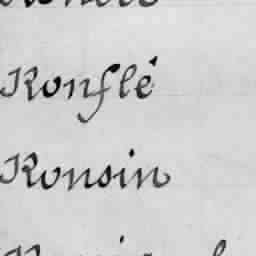 Ronflé
Ronsin